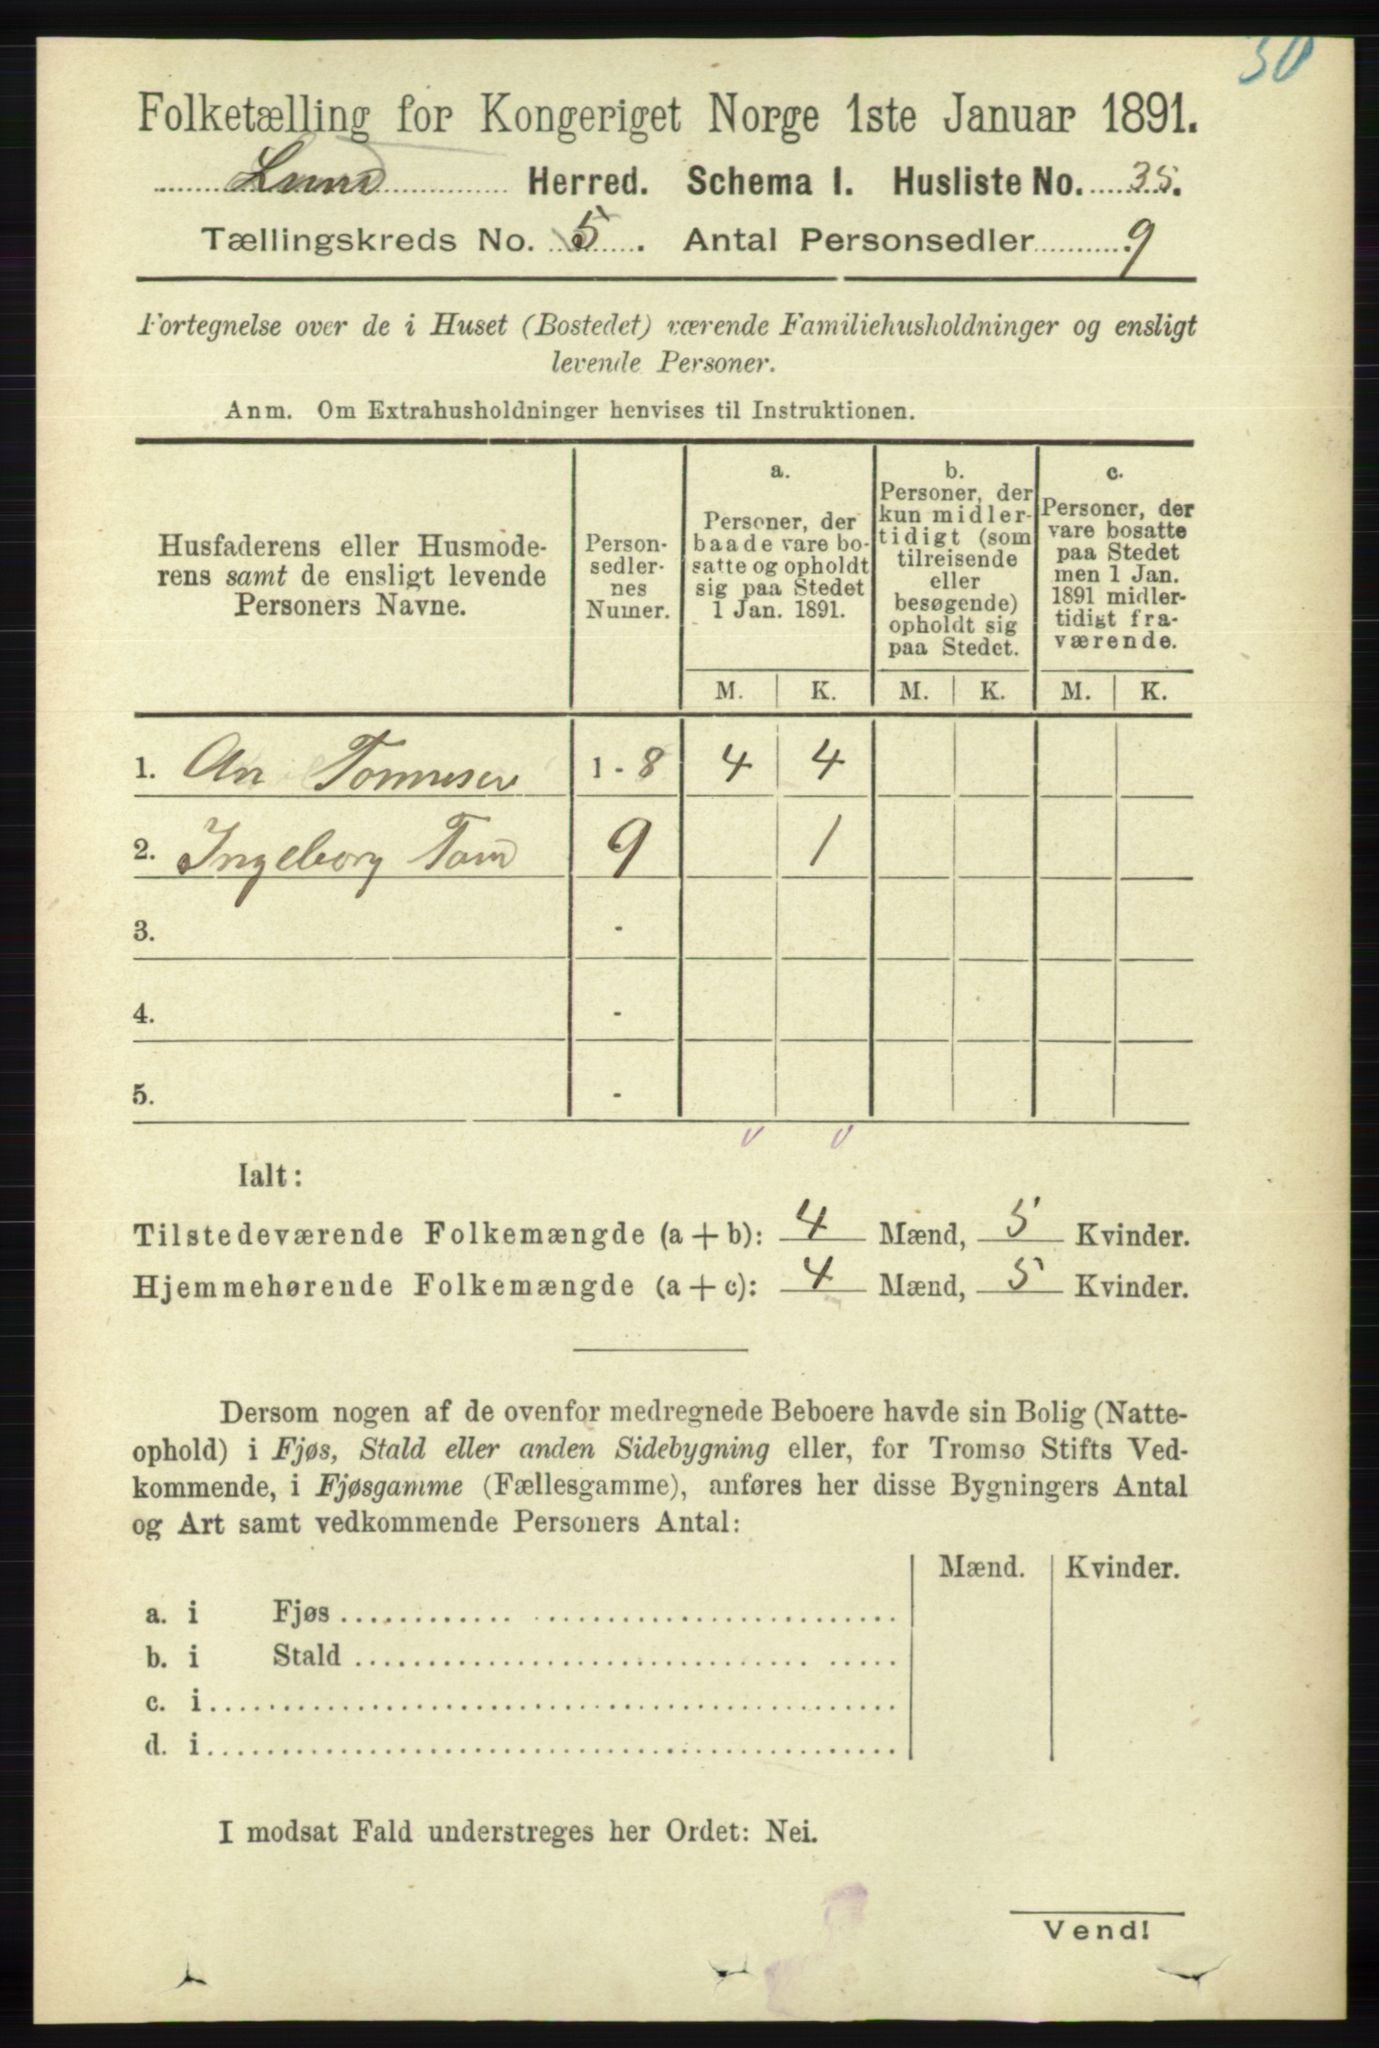 30
Folketælling for Kongeriget Norge 1ste Januar 1891.
Lund Herred. Schema I. Husliste No. 35.
Tællingskreds No. 5. Antal Personsedler 9
Fortegnelse over de i Huset (Bostedet) værende Familiehusholdninger og ensligt
levende Personer.
Anm. Om Extrahusholdninger henvises til Instruktionen.
Husfaderens eller Husmode-
rens samt de ensligt levende
Personers Navne.
Person-
sedler-
nes
Numer.
a.
Personer, der
baade vare bo-
satte og opholdt
sig paa Stedet
1 Jan. 1891.
b.
Personer, der
kun midler-
tidigt (som
tilreisende
eller
besøgende)
opholdt sig
paa Stedet.
c.
Personer, der
vare bosatte
paa Stedet
men 1 Jan.
1891 midler-
tidigt fra-
værende.
M. K. M. K. M. K.
1. An Tonnesen 1 - 8 4 4
2. Ingeborg 9 1
3. -
4. -
5. -
Ialt:
Tilstedeværende Folkemængde (a + b): 4 Mænd, 5 Kvinder.
Hjemmehørende Folkemængde (a + c): 4 Mænd, 5 Kvinder.
Dersom nogen af de ovenfor medregnede Beboere havde sin Bolig (Natte-
ophold) i Fjøs, Stald eller anden Sidebygning eller, for Tromsø Stifts Ved-
kommende, i Fjøsgamme (Fællesgamme), anføres her disse Bygningers Antal
og Art samt vedkommende Personers Antal:
Mænd. Kvinder.
a. i Fjøs
b. i Stald
c. i
d. i
I modsat Fald understreges her Ordet: Nei.
Vend!